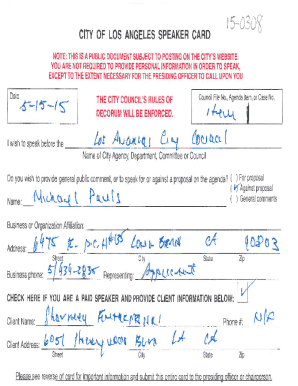 15-0308
CITY OF LOS ANGELES SPEAKER CARD
NOTE: THIS IS A PUBLIC DOCUMENT SUBJECT TO POSTING ON THE CITY'S WEBSITE.
YOU ARE NOT REQUIRED TO PROVIDE PERSONAL INFORMATION IN ORDER TO SPEAK,
EXCEPT TO THE EXTENT NECESSARY FOR THE PRESIDING OFFICER TO CALL UPON YOU.
Date
5-15-15
THE CITY COUNCIL'S RULES OF
DECORUM WILL BE ENFORCED.
Council File No., Agenda Item, or Case No.
item
I wish to speak before the Los Angeles City Council
Name of City Agency, Department, Committee or Council
Do you wish to provide general public comment, or to speak for or against a proposal on the agenda? ( ) For proposal
( ) Against proposal
Name: Michael Pauls ( ) General comments
Business or Organization Affiliation:
Address: 6475 E. P.C.H. Long Beach CA 90803
Street City State Zip
Business phone: Representing: Applicant
CHECK HERE IF YOU ARE A PAID SPEAKER AND PROVIDE CLIENT INFORMATION BELOW:
Client Name: Phone #:
Client Address: 6051 Hollywood Blvd LA CA
Street City State Zip
Please see reverse of card for important information and submit this entire card to the presiding officer or chairperson.